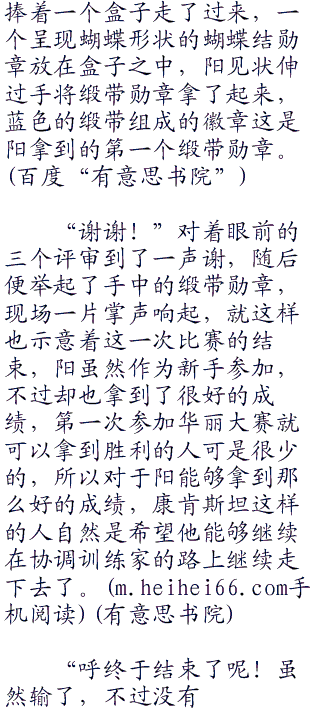 捧着一个盒子走了过来，一
个呈现蝴蝶形状的蝴蝶结勋
章放在盒子之中，阳见状伸
过手将缎带勋章拿了起来，
蓝色的缎带组成的徽章这是
阳拿到的第一个缎带勋章。
(百度“有意思书院”)
“谢谢！”对着眼前的
三个评审到了一声谢，随后
便举起了手中的缎带勋章，
现场一片掌声响起，就这样
也示意着这一次比赛的结
束，阳虽然作为新手参加，
不过却也拿到了很好的成
绩，第一次参加华丽大赛就
可以拿到胜利的人可是很少
的，所以对于阳能够拿到那
么好的成绩，康肯斯坦这样
的人自然是希望他能够继续
在协调训练家的路上继续走
下去了。(m.heihei66.com手
机阅读)(有意思书院)
“呼终于结束了呢！虽
然输了，不过没有